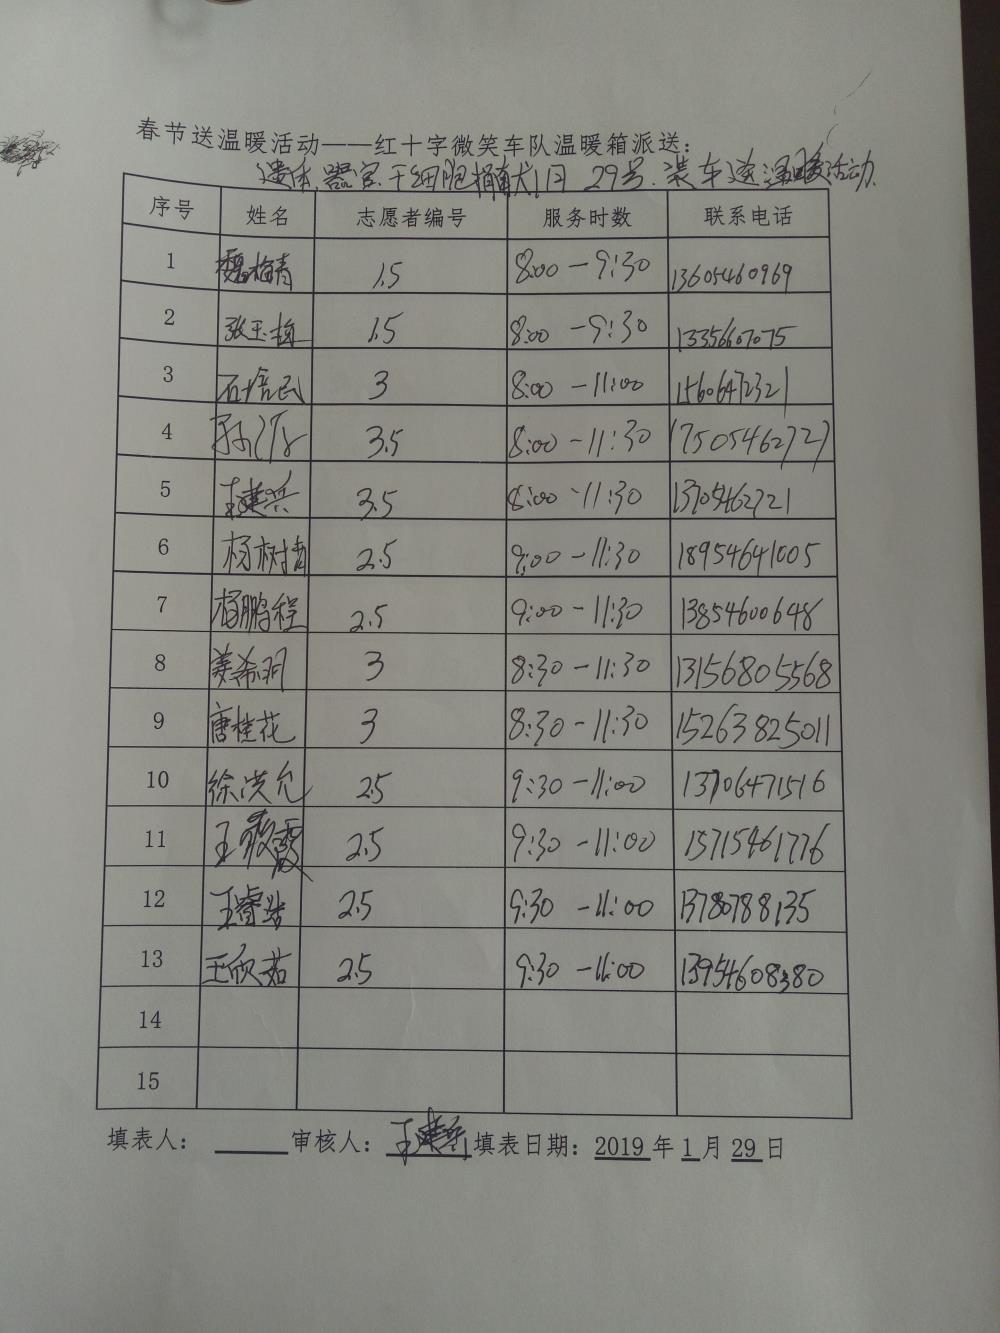 春节送温暖活动——红十字微笑车队温暖箱派送：
遗体、器官、干细胞捐献1月29号.装车送温暖活动.
序号 姓名 志愿者编号 服务时数 联系电话
1 魏梅青 1.5 8:00-9:30 13605460969
2 张玉梅 1.5 8:00-9:30 13356607075
3 石培民 3 8:00-11:00 15606472321
4 3.5 8:00-11:30 17505462727
5 王建兵 3.5 8:00-11:30 13705462721
6 杨树青 2.5 9:00-11:30 18954641005
7 杨鹏程 2.5 9:00-11:30 13854600648
8 姜希明 3 8:30-11:30 13156805568
9 唐桂花 3 8:30-11:30 15263825011
10 徐洪允 2.5 9:30-11:00 13706471516
11 王霞 2.5 9:30-11:00 15715461776
12 王睿 2.5 9:30-11:00 13780788135
13 王欣茹 2.5 9:30-11:00 13954608380
14
15
填表人： 审核人：王建兵 填表日期：2019年1月29日